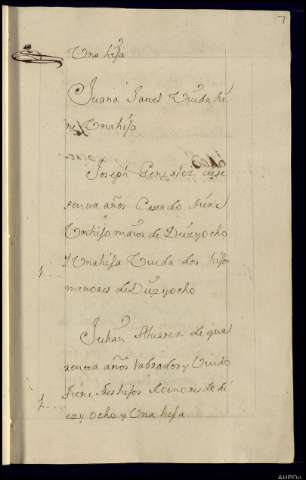 7
Una hija
Juana Janes Viuda tie
ne Una hija
Joseph Gonzalez de se
senta años Casado tiene
Un hijo maior de Diez y ocho
Y Una hija Viuda dos hijos
menores de Diez y ocho
1
Julian Alvarez de qua
renta años labrador y Viudo
tiene tres hijos menores de di
ez y ocho y Una hija
1
AHPOu